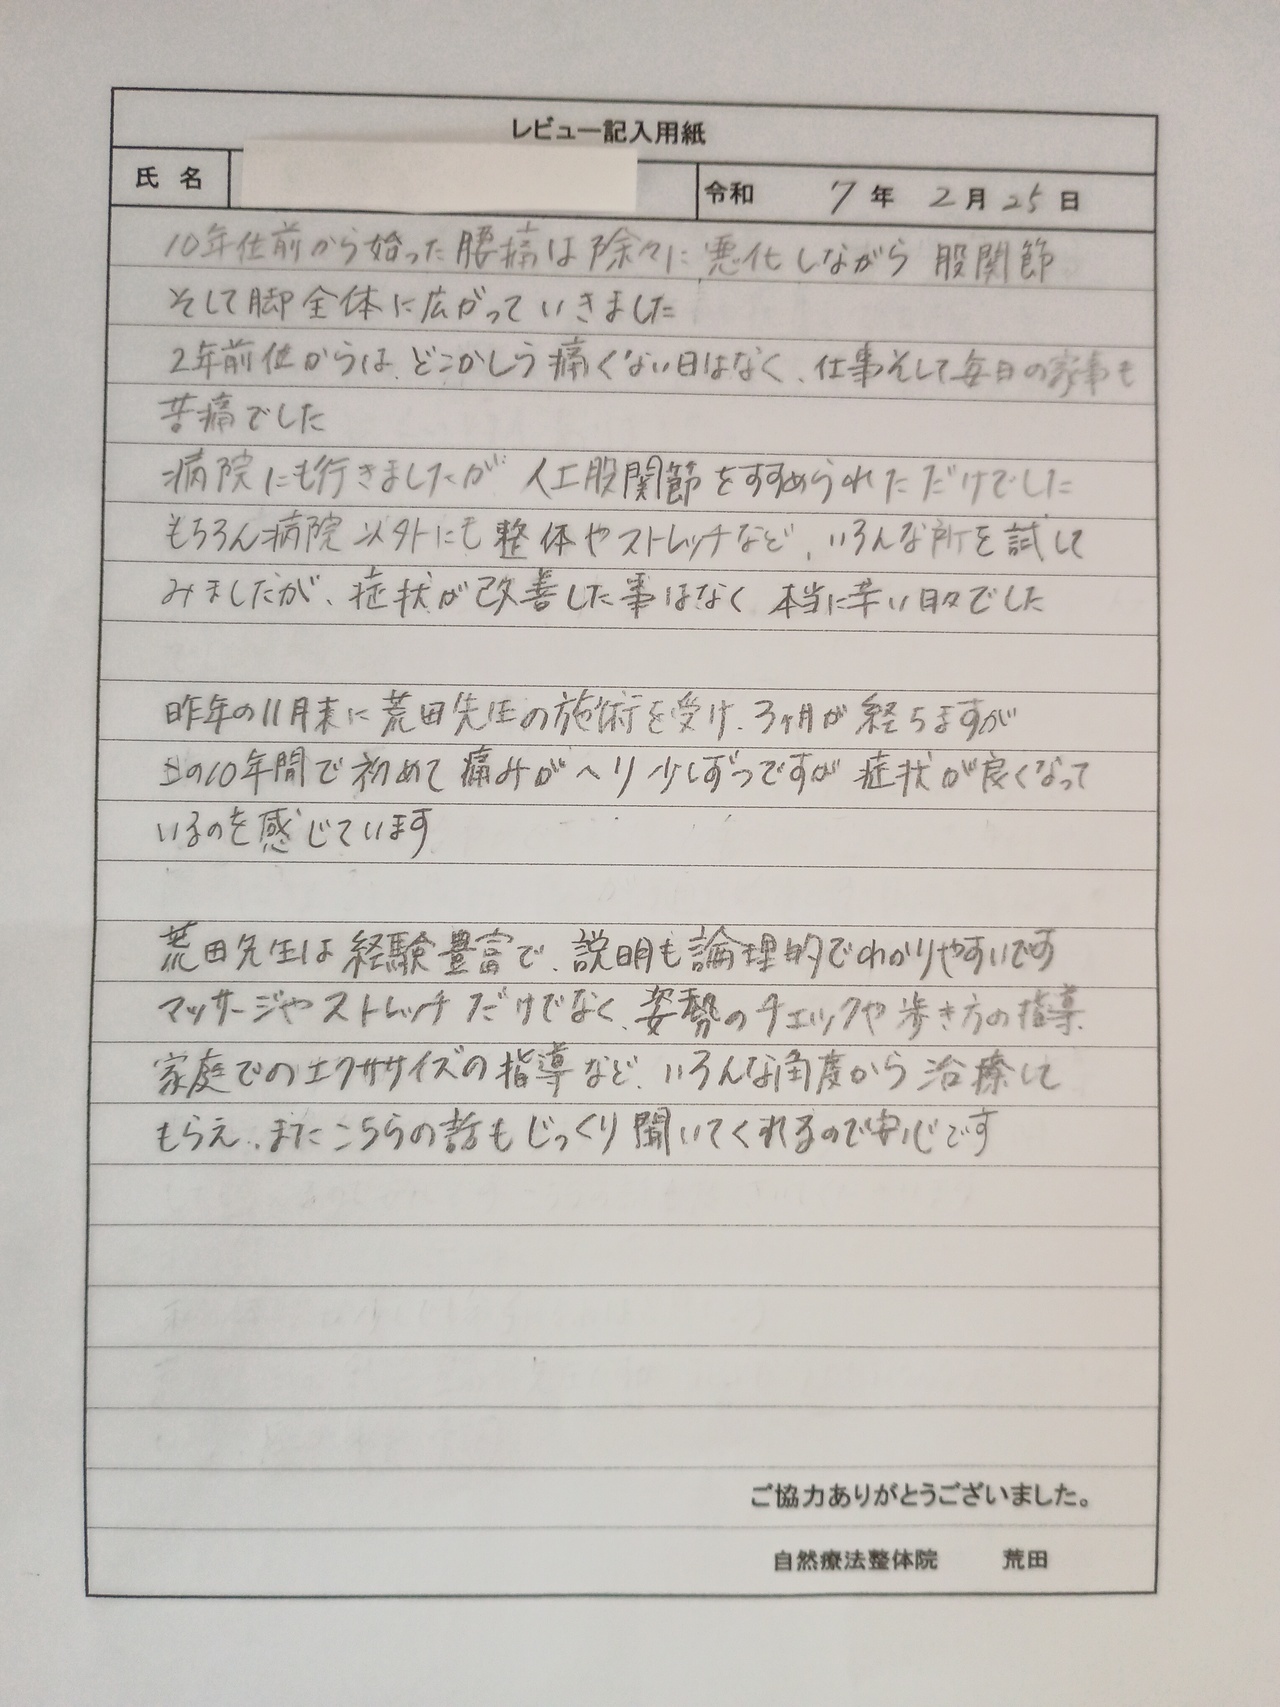 レビュー記入用紙
氏名 令和 7年 2月 25日
10年位前から始った腰痛は除々に悪化しながら 股関節
そして脚全体に広がっていきました
2年前位からは、どこかしら痛くない日はなく、仕事そして毎日の家事も
苦痛でした
病院にも行きましたが 人工股関節をすすめられただけでした
もちろん病院以外にも整体やストレッチなど、いろんな所を試して
みましたが、症状が改善した事はなく 本当に辛い日々でした
昨年の11月末に荒田先生の施術を受け、3ヶ月が経ちますが
の10年間で初めて痛みがへり少しずつですが 症状が良くなって
いるのを感じています
荒田先生は経験豊富で、説明も論理的でわかりやすいです
マッサージやストレッチだけでなく、姿勢のチェックや歩き方の指導
家庭でのエクササイズの指導など、いろんな角度から治療して
もらえ、またこちらの話もじっくり聞いてくれるので安心です
ご協力ありがとうございました。
自然療法整体院 荒田